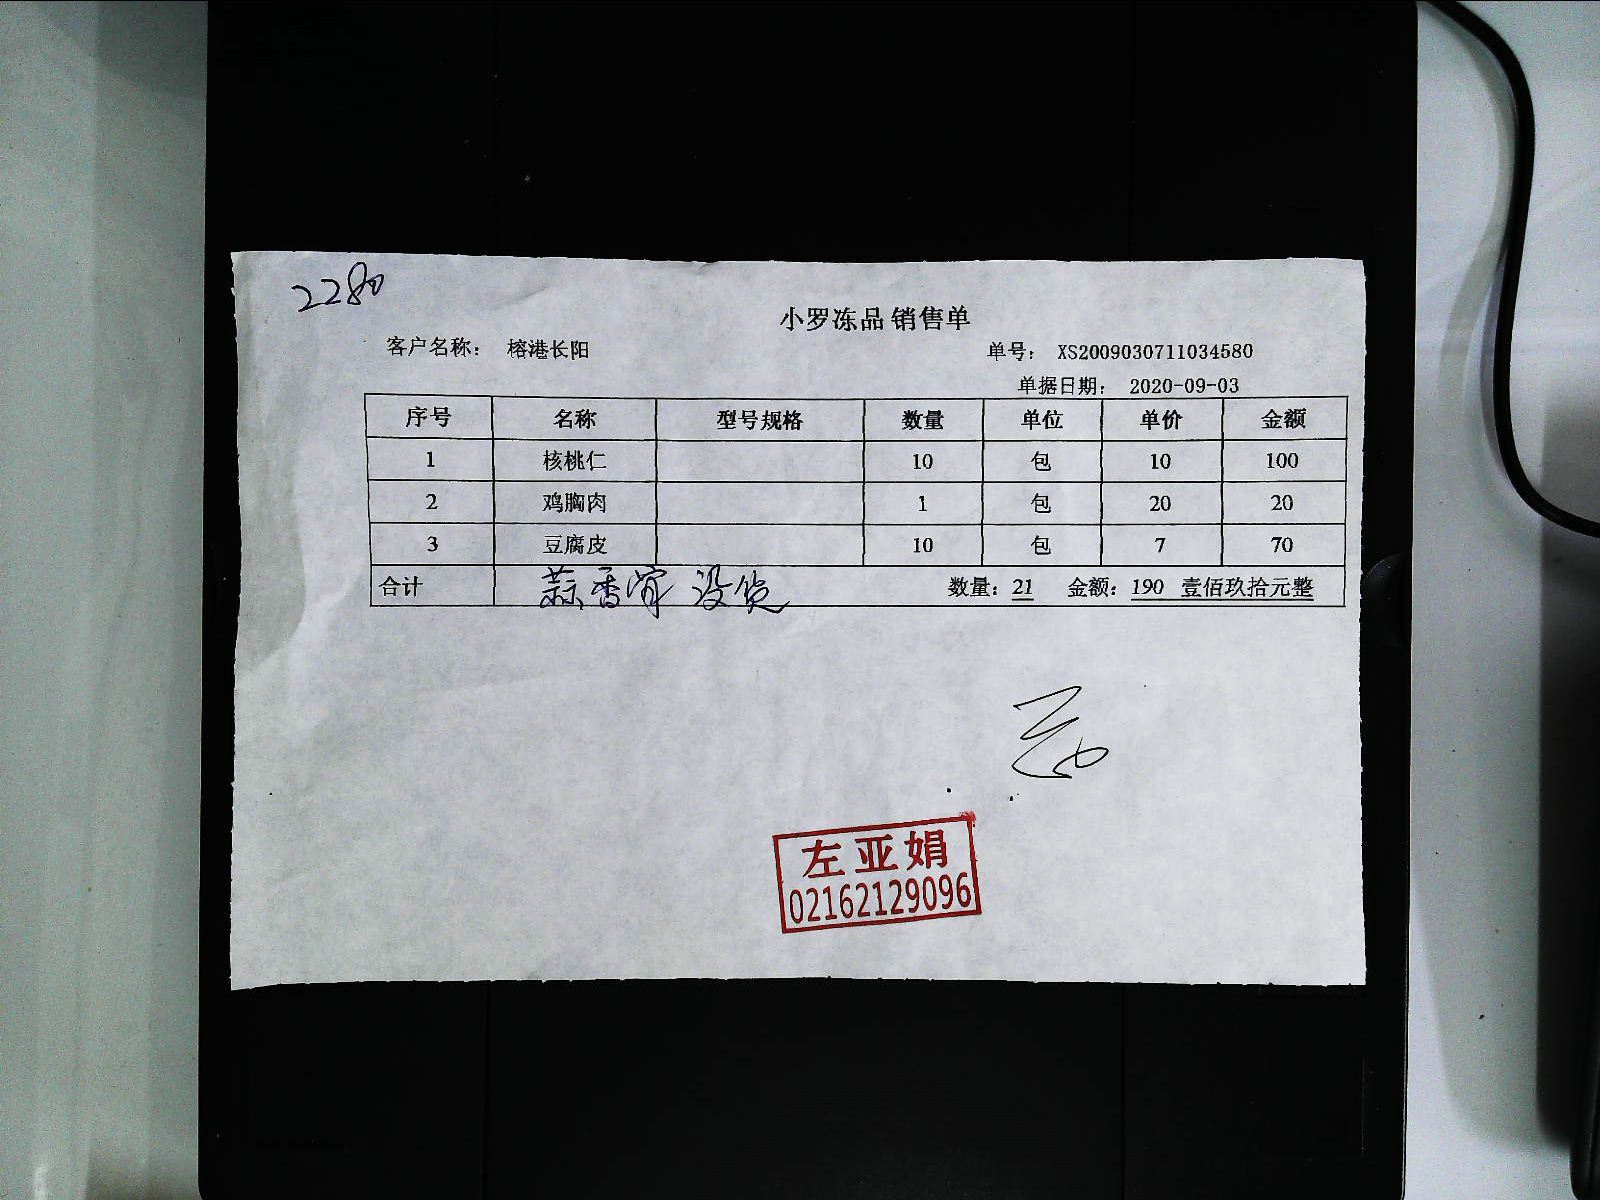 2280
小罗冻品 销售单
客户名称： 榕港长阳 单号： XS2009030711034580
单据日期： 2020-09-03
序号 名称 型号规格 数量 单位 单价 金额
1 核桃仁 10 包 10 100
2 鸡胸肉 1 包 20 20
3 豆腐皮 10 包 7 70
合计 蒜香 没货 数量：21 金额：190 壹佰玖拾元整
左亚娟
02162129096